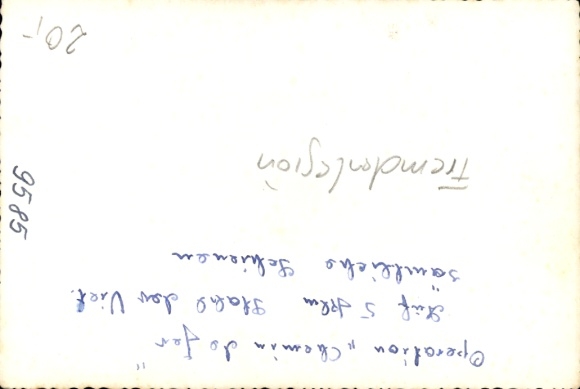 Operation „Chemin de fer"
Auf 5 Klm stahl der Viet.
sämtliche Schienen
Fremdenlegion
9585
20,-